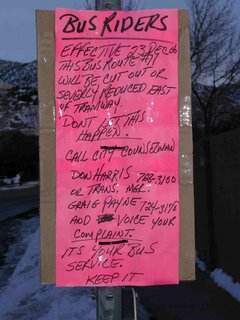 BUS RIDERS
EFFECTIVE 23 DEC 06
THIS BUS ROUTE #
WILL BE CUT OUT OR
SEVERLY REDUCED EAST
OF TRAMWAY.
DON'T LET THIS
HAPPEN.
CALL CITY COUNSELMAN
DON HARRIS 768-3100
OR TRANS. MGR.
GRAIG PAYNE 724-3178
AND VOICE YOUR
COMPLAINT.
IT'S YOUR BUS
SERVICE.
KEEP IT